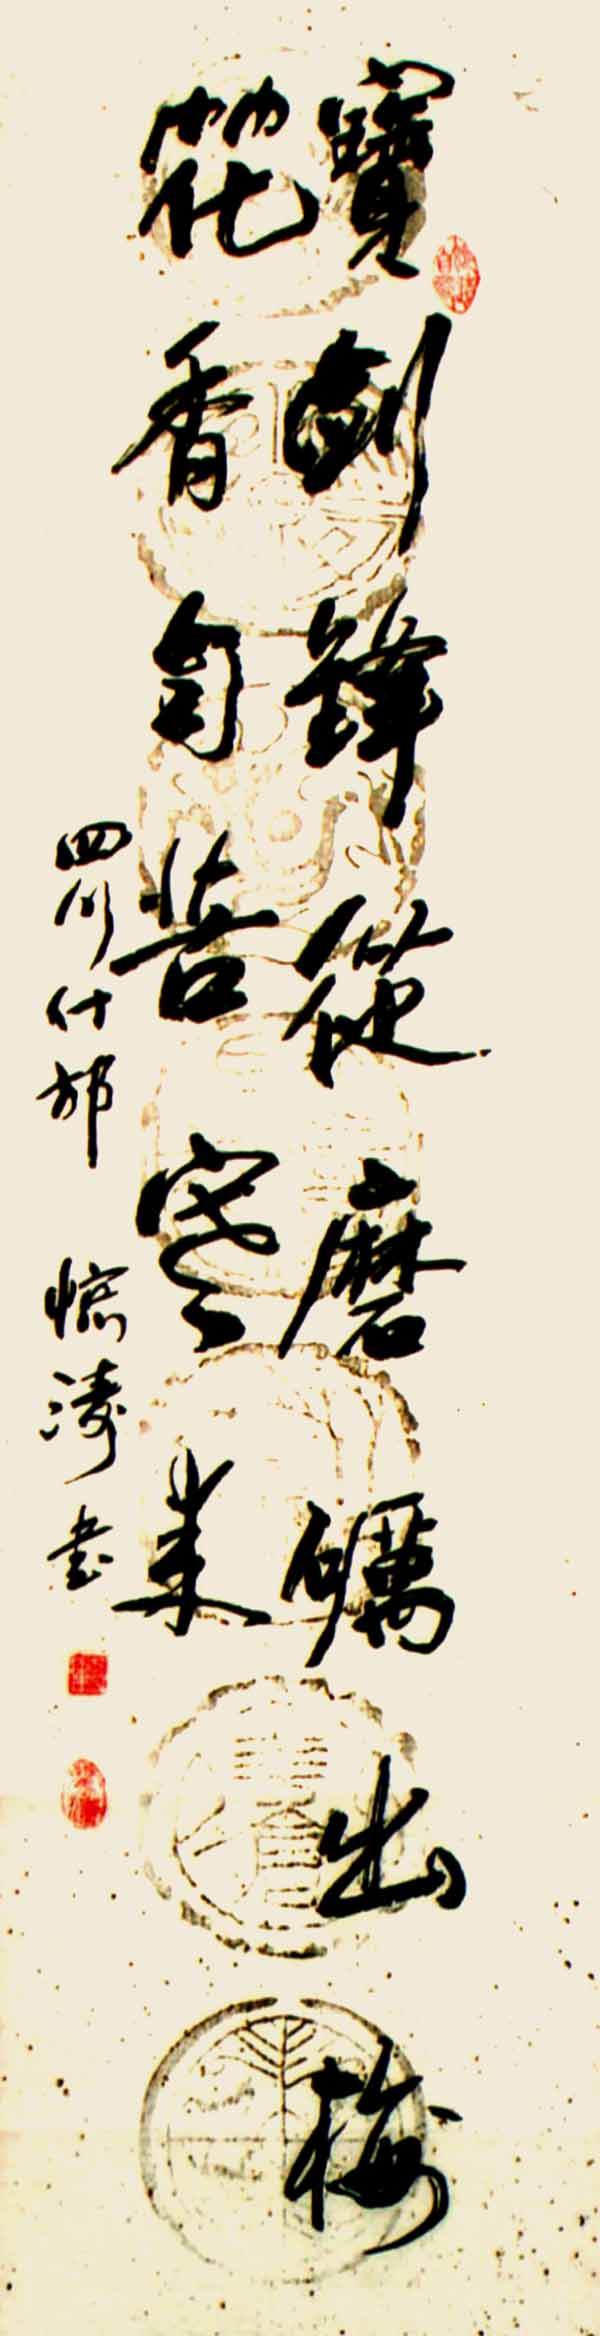 寶劍鋒從磨礪出梅
花香自苦寒來
四川什邡 惊濤书